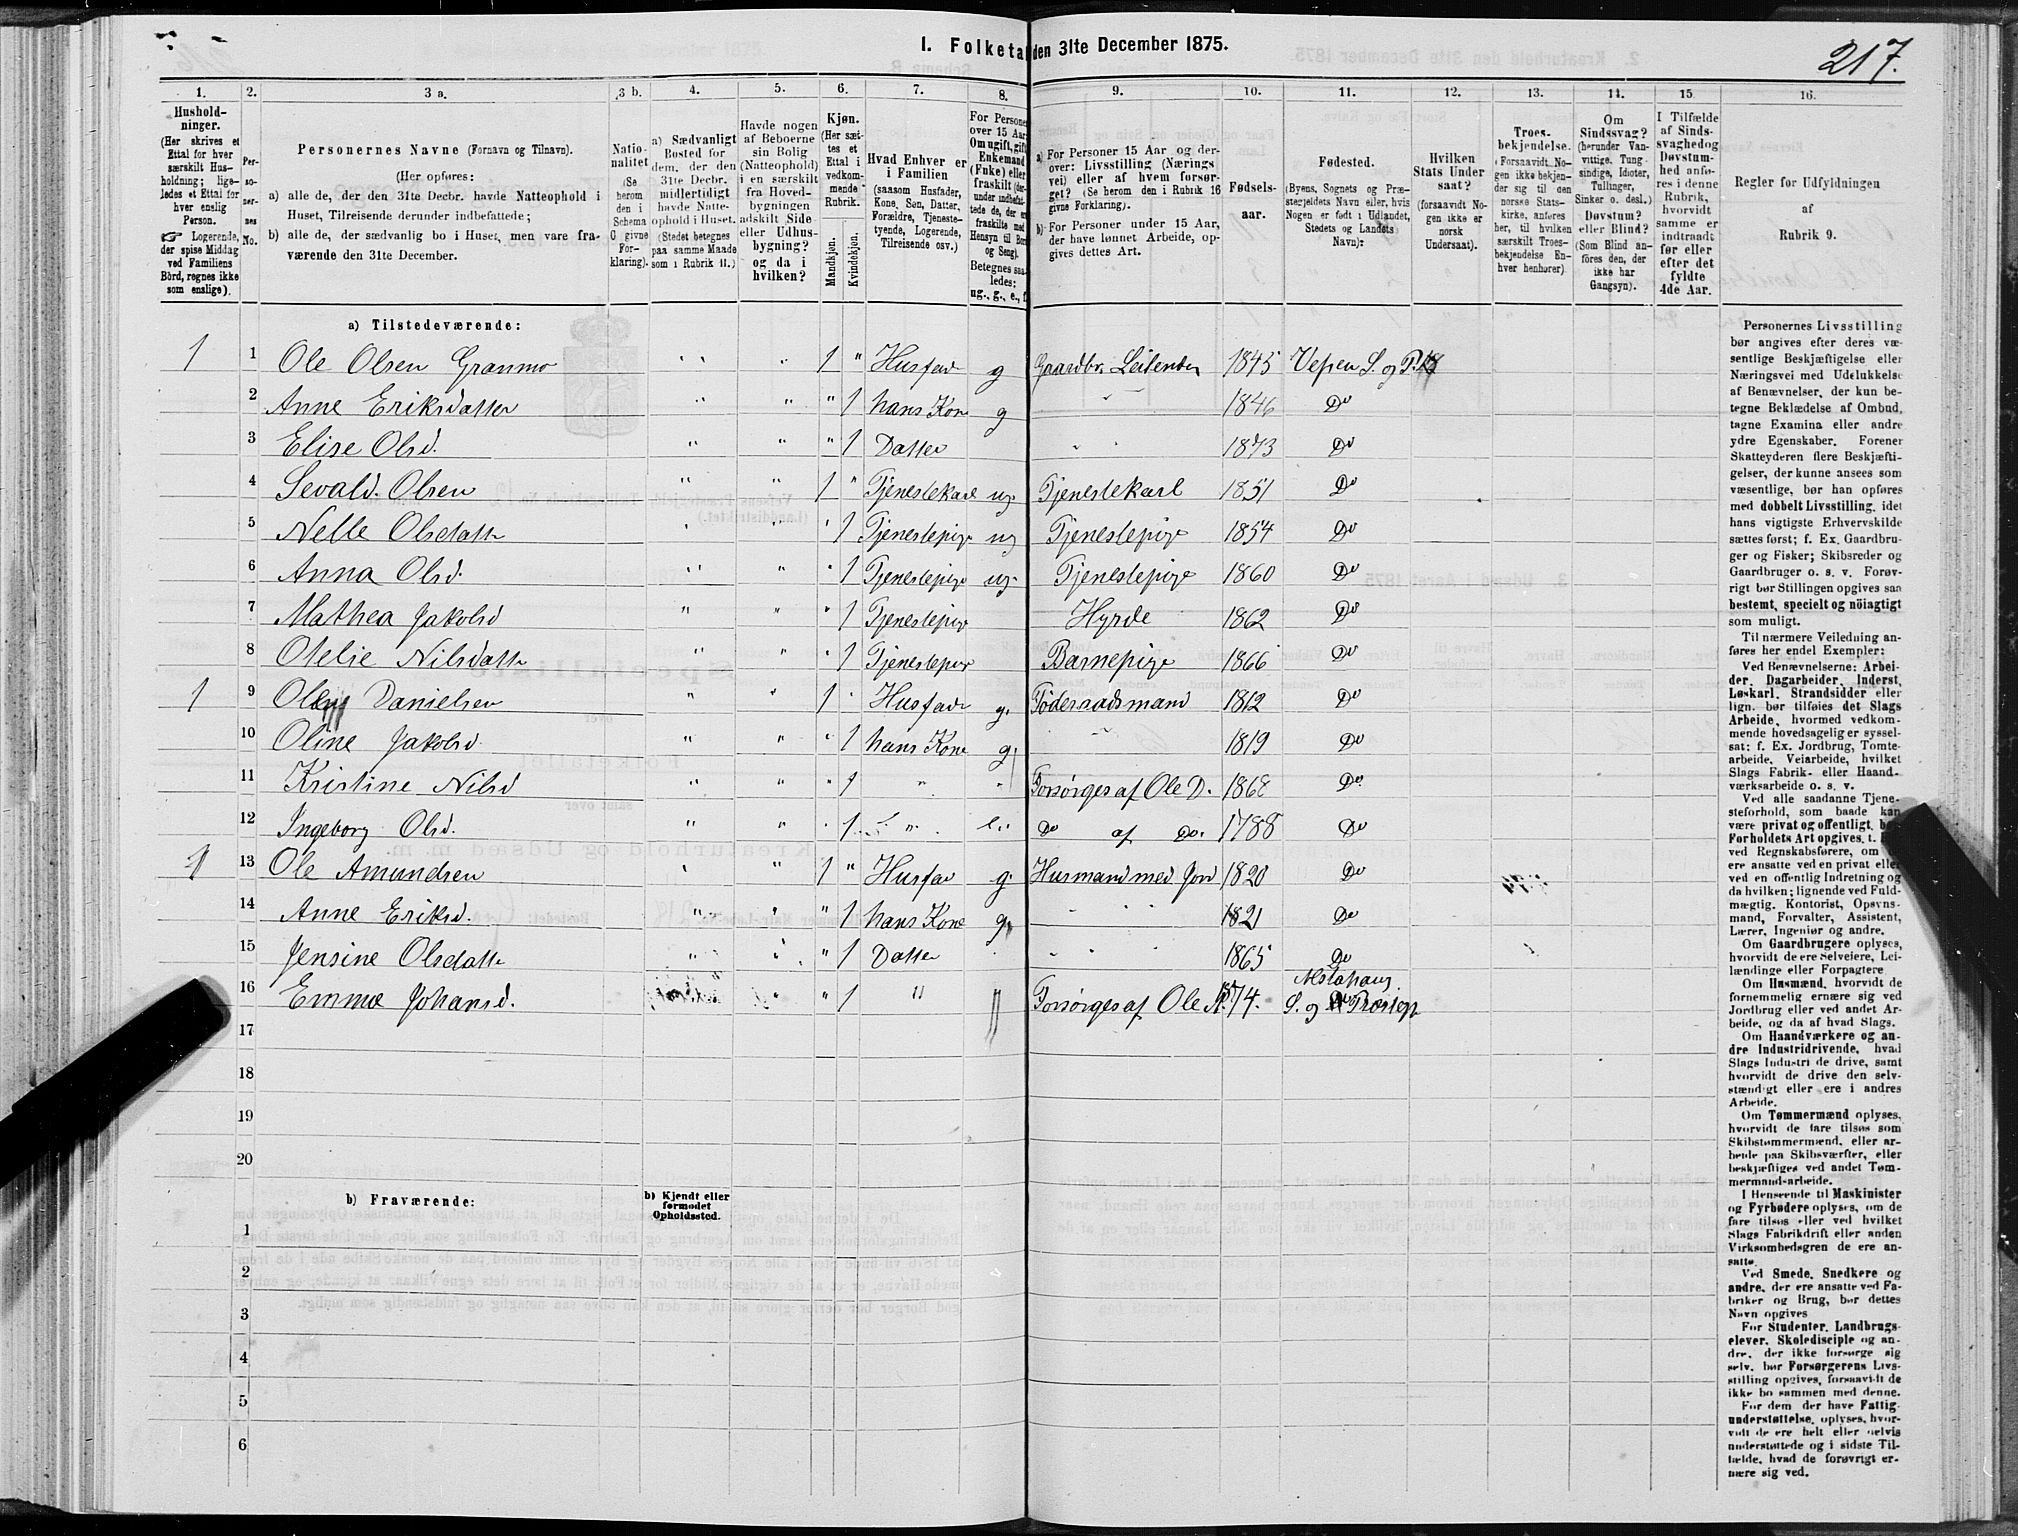 I. Folketal den 31te December 1875.
217.
1. 2. 3 a. 3 b. 4. 5. 6. 7. 8. 9. 10. 11. 12. 13. 14. 15. 16.
Hushold-
ninger.
(Her skrives et
Ettal for hver
særskilt Hus-
holdning; lige-
ledes et Ettal for
hver enslig
Person.
☞ Logerende,
der spise Middag
ved Familiens
Bord, regnes ikke
som enslige).
Per-
so-
ner-
nes
No.
Personernes Navne (Fornavn og Tilnavn).
(Her opføres:
a) alle de, der den 31te Decbr. havde Natteophold i
Huset, Tilreisende derunder indbefattede;
b) alle de, der sædvanlig bo i Huset, men vare fra-
værende den 31te December.
Natio-
nalitet
(Se
herom
den i
Schema
O givne
For-
klaring).
a) Sædvanligt
Bosted for
dem, der den
31te Decbr.
midlertidigt
havde Natte-
ophold i Huset.
(Stedet betegnes
paa samme Maade
som i Rubrik 11.)
Havde nogen
af Beboerne
sin Bolig
(Natteophold)
i en særskilt
fra Hoved-
bygningen
adskilt Side-
eller Udhus-
bygning?
og da i
hvilken?
Kjøn.
(Her sæt-
tes et
Ettal i
vedkom-
mende
Rubrik.
Mandkjøn.
Kvindekjøn.
Hvad Enhver er
i Familien
(saasom Husfader,
Kone, Søn, Datter,
Forældre, Tjeneste-
tyende, Logerende,
Tilreisende osv.)
For Personer
over 15 Aar:
Om ugift, gift,
Enkemand
(Enke) eller
fraskilt (der-
under indbefat-
tede de, der er
fraskilte med
Hensyn til Bord
og Seng).
Betegnes saa-
ledes:
ug., g., e., f.
a) For Personer 15 Aar og der-
over: Livsstilling (Nærings-
vei) eller af hvem forsør-
get? (Se herom den i Rubrik 16
givne Forklaring).
b) For Personer under 15 Aar,
der have lønnet Arbeide, op-
gives dettes Art.
Fødsels-
aar.
Fødested.
(Byens, Sognets og Præ-
stegjeldets Navn eller, hvis
Nogen er født i Udlandet,
Stedets og Landets
Navn):
Hvilken
Stats Under-
saat?
(forsaavidt No-
gen ikke er
norsk
Undersaat).
Troes-
bekjendelse.
(Forsaavidt No-
gen ikke bekjen-
der sig til den
norske Stats-
kirke, anføres
her, til hvilken
særskilt Troes-
bekjendelse En-
hver henhører).
Om
Sindssvag?
(herunder Van-
vittige, Tung-
sindige, Idioter,
Tullinger,
Sinker o. desl.)
Døvstum?
eller Blind?
(Som Blind an-
føres den, der
ikke har
Gangsyn).
I Tilfælde
af Sinds-
svaghed og
Døvstum-
hed anfø-
res i denne
Rubrik,
hvorvidt
samme er
indtraadt
før eller
efter det
fyldte
4de Aar.
Regler for Udfyldningen
af
Rubrik 9.
a) Tilstedeværende:
1 1 Ole Olsen Granmo " " " 1 " Husfad g Gaardbr. Leilending 1845 Vefsen S. og P.
2 Anne Eriksdatter " " " " 1 hans Kone g " 1846 Do
3 Elise Olsd. " " " 1 Datter " 1873 Do
4 Sevald Olsen " " 1 " Tjenestekarl ug Tjenestekarl 1851 Do
5 Nelle Olsdatt " " " 1 Tjenestepige ug Tjenestepige 1854 Do
6 Anna Olsd. " " " 1 Tjenestepige ug. Tjenestepige 1860 Do
7 Mathea Jakobsd " " " 1 Tjenestepig Hyrde 1862 Do
8 Otelie Nilsdatt " " " 1 Tjenestepig Barnepige 1866 Do
1 9 Ole Danielsen " " 1 " Husfad g. Føderaadsmand 1812 Do
10 Oline Jakobsd. " " " 1 hans Kone g. " 1819 Do
11 Kristine Nilsd " " " 1 " " Forsørges af Ole D. 1868 Do
12 Ingeborg Olsd. " " " 1 " Do af Do. 1788 Do
1 13 Ole Amundsen " " 1 " Husfad g. Husmand med Jord 1820 Do
14 Anne Eriksd. " " " 1 hans Kone g. " " 1821 Do
15 Jensine Olsdatt " " " 1 Datter " " 1865 Do
16 Emma Johansd. " " 1 " Forsørges af Ole A. 1874. Alstahaug
S. og Præstegj
17
18
19
20
b) Fraværende:
b) Kjendt eller
formodet
Opholdssted.
1
2
3
4
5
6
Personernes Livsstilling
bør angives efter deres væ-
sentlige Beskjæftigelse eller
Næringsvei med Udelukkelse
af Benævnelser, der kun be-
tegne Beklædelse af Ombud,
tagne Examina eller andre
ydre Egenskaber. Forener
Skatteyderen flere Beskjæfti-
gelser, der kunne ansees som
væsentlige, bør han opføres
med dobbelt Livsstilling, idet
hans vigtigste Erhvervskilde
sættes først; f. Ex. Gaardbru-
ger og Fisker; Skibsreder og
Gaardbruger o. s. v. Forøv-
rigt bør Stillingen opgives saa
bestemt, specielt og nöiagtigt
som muligt.
Til nærmere Veiledning an-
føres her endel Exempler:
Ved Benævnelserne: Arbei-
der, Dagarbeider, Inderst,
Løskarl, Strandsidder eller
lign. bør tilføies det Slags
Arbeide, hvormed vedkom-
mende hovedsagelig er syssel-
sat; f. Ex. Jordbrug, Tomte-
arbeide, Veiarbeide, hvilket
Slags Fabrik- eller Haand-
værksarbeide o. s. v.
Ved alle saadanne Tjene-
steforhold, som baade kan
være privat og offentligt, bør
Forholdets Art opgives, t.
ved Regnskabsførere, om
ere ansatte ved en privat eller
ved en offentlig Indretning og
da hvilken; lignende ved Fuld-
mægtig, Kontorist, Opsyns-
mand, Forvalter, Assistent,
Lærer, Ingeniør og andre.
Om Gaardbrugere oplyses,
hvorvidt de ere Selveiere, Lei-
lændinge eller Forpagtere
Om Husmænd, hvorvidt de
fornemmelig ernære sig ved
Jordbrug eller ved andet Ar-
beide, og da af hvad Slags.
Om Haandværkere og an-
dre Industridrivende, hvad
Slags Industri de drive, samt
hvorvidt de drive den selv-
stændigt eller ere i andres
Arbeide.
Om Tømmermænd oplyses,
hvorvidt de fare tilsøs som
Skibstømmermænd, eller ar-
beide paa Skibsværfter, eller
beskjæftiges ved andet Tøm-
mermand-arbeide.
I Henseende til Maskinister
og Fyrbødere oplyses, om de
fare tilsøs eller ved hvilket
Slags Fabrikdrift eller anden
Virksomhedsgren de ere an-
satte.
Ved Smede, Snedkere og
andre, der ere ansatte ved Fa-
briker og Brug, bør dettes
Navn opgives
For Studenter, Landbrugs-
elever, Skoledisciple og an-
dre, der ikke forsørge sig
selv, bør Forsørgerens Livs-
stilling opgives, forsaavidt de
ikke bo sammen med denne.
For dem der have Fattig-
understøttelse, oplyses, hvor-
vidt de ere helt eller delvis
understøttede og i sidste Til-
fælde, hvad de forøvrigt er-
nære sig ved.